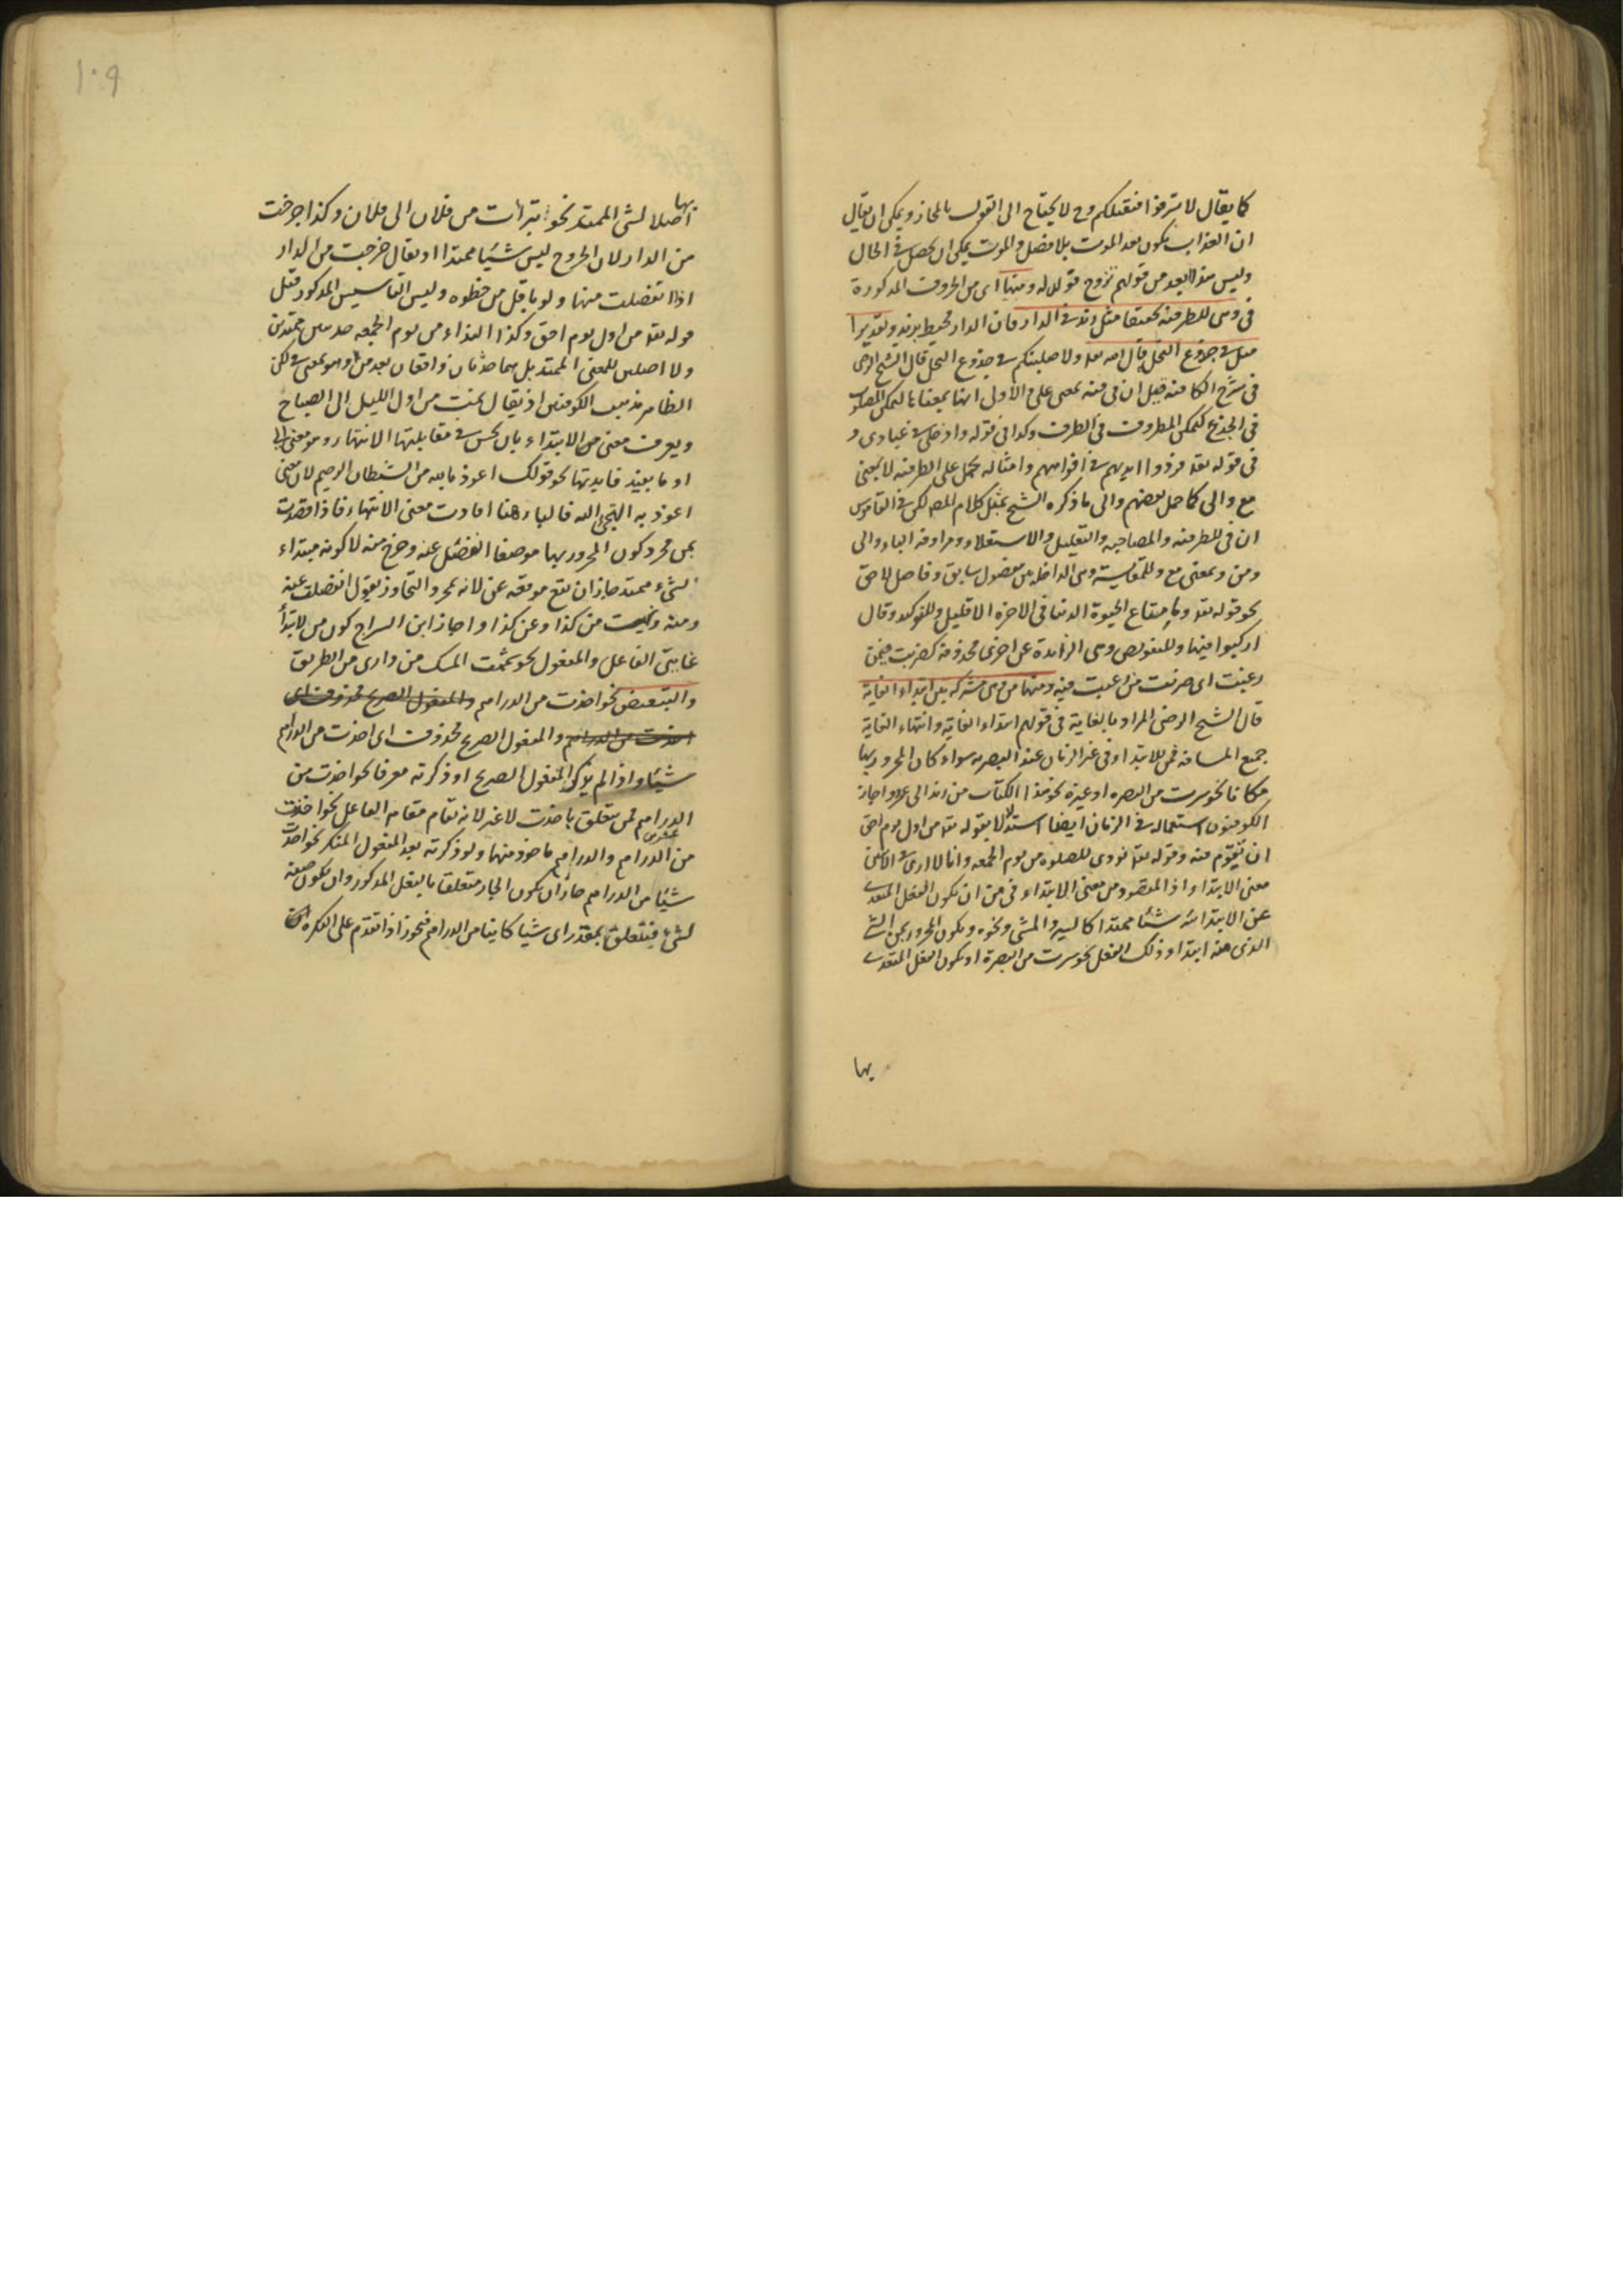 كما يقال لا تسرفوا فنقتلكم وح لا يحتاج الى القول بالمجاز ويمكن ان يقال
ان العذاب يكون بعد الموت بلا فصل والموت يمكن ان يحصل في الحال
وليس هذا بابعد من قولهم تزوج فولد له ومنها اى من الحروف المذكورة
فى وهى للظرفية تحقيقا مثل زيد فى الدار فان الدار محيط بزيد وتقديرا
مثل فى جذوع النخل قال الله تعا ولاصلبنكم فى جذوع النخل قال الشيخ الرضى
فى شرح الكافية قيل ان فى فيه بمعنى على والاولى انها بمعناها لتمكن المصلوب
فى الجذع كتمكن المظروف فى الظرف وكذا فى قوله وادخلى فى عبادى و
فى قوله تعا فردوا ايديهم فى افواههم وامثاله محمل على الظرفية لا بمعنى
مع والى كما حمل بعضهم والى ما ذكره الشيخ يميل كلام المص لكن فى القاموس
ان فى للظرفية والمصاحبة والتعليل والاستعلاء ومرادفة الباء والى
ومن وبمعنى مع وللمقايسة وهى الداخلة بين مفضول سابق وفاضل لاحق
نحو قوله تعا وما متاع الحيوة الدنيا فى الاخرة الا قليل وللتوكيد وقال
اركبوا فيها وللتعويض وهى الزائدة عن اخرى محذوفة كضربت فيمن
رغبت اى ضربت من رغبت فيه ومنها من وهى مشتركة بين ابتداء الغاية
قال الشيخ الرضى المراد بالغاية فى قولهم ابتداء الغاية وانتهاء الغاية
جميع المسافة فمن للابتداء فى غير الزمان عند البصرية سواء كان المجرور بها
مكانا نحو سرت من البصرة او غيره نحو هذا الكتاب من زيد الى عمرو واجاز
الكوفيون استعماله فى الزمان ايضا استدلالا بقوله تعا من اول يوم احق
ان تقوم فيه وقوله تعا نودى للصلوة من يوم الجمعة وانا لا ارى فى الآيتين
معنى الابتداء اذ المقصود من معنى الابتداء فى من ان يكون الفعل المتعدى
عن الابتدائية شيئا ممتدا كالسير والمشى ونحوه ويكون المجرور بمن الشئ
الذى منه ابتداء ذلك الفعل نحو سرت من البصرة او يكون الفعل المتعدى
بها
١٠٩
بها
اصلا لشئ الممتد نحو تبرأت من فلان الى فلان وكذا خرجت
من الدار لان الخروج ليس شيئا ممتدا اذ يقال خرجت من الدار
اذا انفصلت منها ولو باقل من خطوة وليس التأسيس المذكور قبل
قوله تعا من اول يوم احق وكذا النداء من يوم الجمعة حدثين ممتدين
ولا اصلين للمعنى الممتد بل هما حدثان واقعان بعد من وهو بمعنى فى لكن
الظاهر مذهب الكوفيين اذ يقال نمت من اول الليل الى الصباح
ويعرف معنى من الابتداء بان يحسن فى مقابلتها الانتهاء وهو معنى الى
او ما يفيد فايدتها نحو قولك اعوذ بالله من الشيطان الرجيم لان معنى
اعوذ به التجئ الى الله فالباء هنا افادت معنى الانتهاء فاذا قصدت
بمن مجرد كون المجرور بها موضعا انفصل عنه وخرج منه لا كونه مبتداء
لشئ ممتد جاز ان يقع موقعه عن لانه لمجرد التجاوز يقول انفصلت عنه
ومنه ونهيت من كذا وعن كذا واجاز ابن السراج كون من لابتداء
غايتى الفاعل والمفعول نحو شممت المسك من دارى من الطريق
والتبعيض نحو اخذت من الدراهم والمفعول الصريح محذوف اى
اخذت من الدراهم والمفعول الصريح محذوف اى اخذت من الدراهم
شيئا واذا لم يذكر المفعول الصريح او ذكرته معرفا نحو اخذت من
الدراهم فمن متعلق باخذت لا غير لانه تقام مقام الفاعل نحو اخذت
من الدراهم والدراهم ماخوذ منها ولو ذكرته بعد المفعول المنكر نحو اخذت
شيئا من الدراهم جاز ان يكون الجار متعلقا بالفعل المذكور وان يكون صفة
لشئ فيتعلق بمقدر اى شيئا كاينا من الدراهم فيجوز اذا تقدم على النكرة